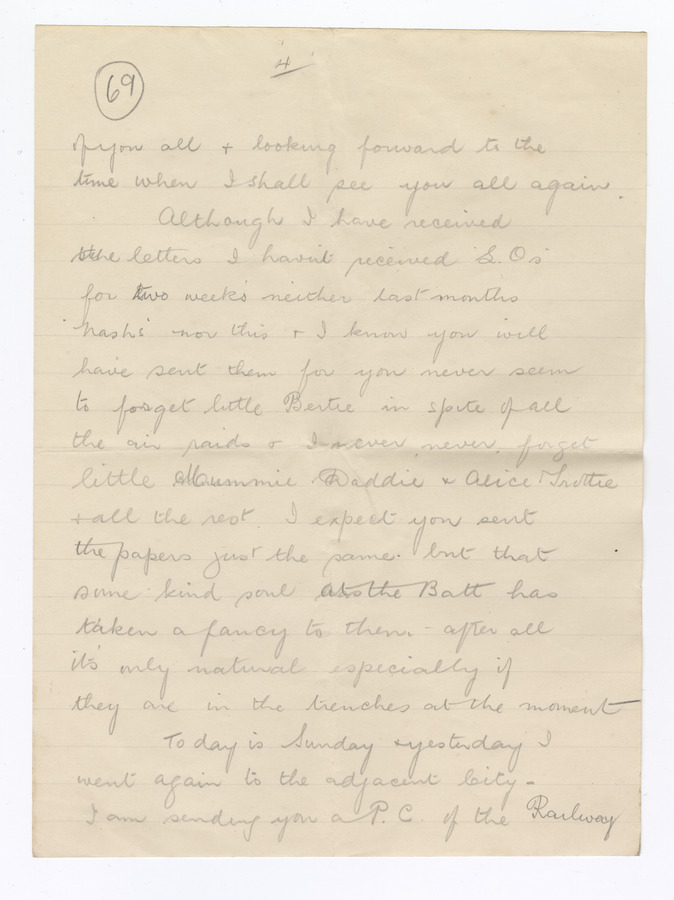 69
4
of you all + looking forward to the
time when I shall see you all again.
Although I have received
the letters I havn't received S.Os
for two weeks neither last months
'Nash's' nor this + I know you will
have sent them for you never seem
to forget little Bertie in spite of all
the air raids & I never, never, forget
little Mummie Daddie & Alice Trottie
+ all the rest. I expect you sent
the papers just the same. but that
some kind soul at the Batt has
taken a fancy to them. - after all
it's only natural especially if
they are in the trenches at the moment
Today is Sunday & yesterday I
went again to the adjacent City -
I am sending you a P.C. of the Railway